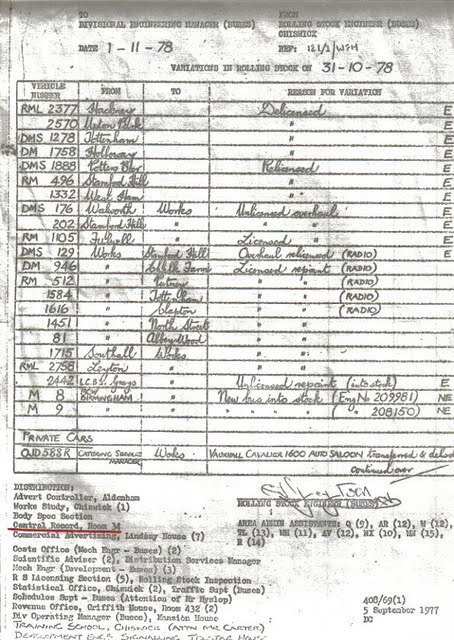 TO FROM
DIVISIONAL ENGINEERING MANAGER (BUSES) ROLLING STOCK ENGINEER (BUSES)
CHISWICK
DATE 1-11-78 REF: 121/1/WJH
VARIATIONS IN ROLLING STOCK ON 31-10-78
VEHICLE NUMBER FROM TO REASON FOR VARIATION
RML 2377 Hackney Delicensed E
2570 Upton Park " E
DMS 1278 Tottenham " E
DM 1758 Holloway " E
DMS 1888 Potters Bar Relicensed E
RM 496 Stamford Hill " E
1332 West Ham " E
DMS 176 Walworth Works Unlicensed overhaul E
202 Stamford Hill " " " E
RM 1105 Fulwell " Licensed " E
DMS 129 Works Stamford Hill Overhaul relicensed (RADIO) E
DM 946 " Chalk Farm Licensed repaint (RADIO)
RM 512 " Putney " " (RADIO)
1584 " Tottenham " " (RADIO)
1616 " Clapton " " (RADIO)
1451 " North Street " "
81 " Abbey Wood " "
1715 Southall Works " "
RML 2758 Leyton " " "
2442 L.C.B.S. Grays " Unlicensed repaint (into stock) E
M 8 BIRMINGHAM New bus into stock (Eng No 209981) NE
M 9 " " " " 208150) NE
PRIVATE CARS
OJD 588R CATERING SERVICES MANAGER Works VAUXHALL CAVALIER 1600 AUTO SALOON transferred &
continued over
DISTRIBUTION:
Advert Controller, Aldenham
Works Study, Chiswick (1)
Body Spec Section
Central Record, Room 34
Commercial Advertising, Lindsay House (7)
Costs Office (Mech Engr - Buses) (2)
Scientific Adviser (2), Distribution Services Manager
Mech Engr (Development - Buses) (3)
R S Licensing Section (5), Rolling Stock Inspection
Statistical Office, Chiswick (2), Traffic Supt (Buses)
Schedules Supt - Buses (Attention of Mr Hyslop)
Revenue Office, Griffith House, Room 432 (2)
Div Operating Manager (Buses), Mansion House
TRAINING SCHOOL, CHISWICK (ATTN MR CARTER)
DEVELOPMENT ENGR SIGNALLING TELSTAR HOUSE
ROLLING STOCK ENGINEER (BUSES)
AREA ADMIN ASSISTANTS: Q (9), AR (12), W (12),
TL (13), WH (11), AV (12), HX (10), MW (15),
R (14)
408/69(1)
5 September 1977
DC